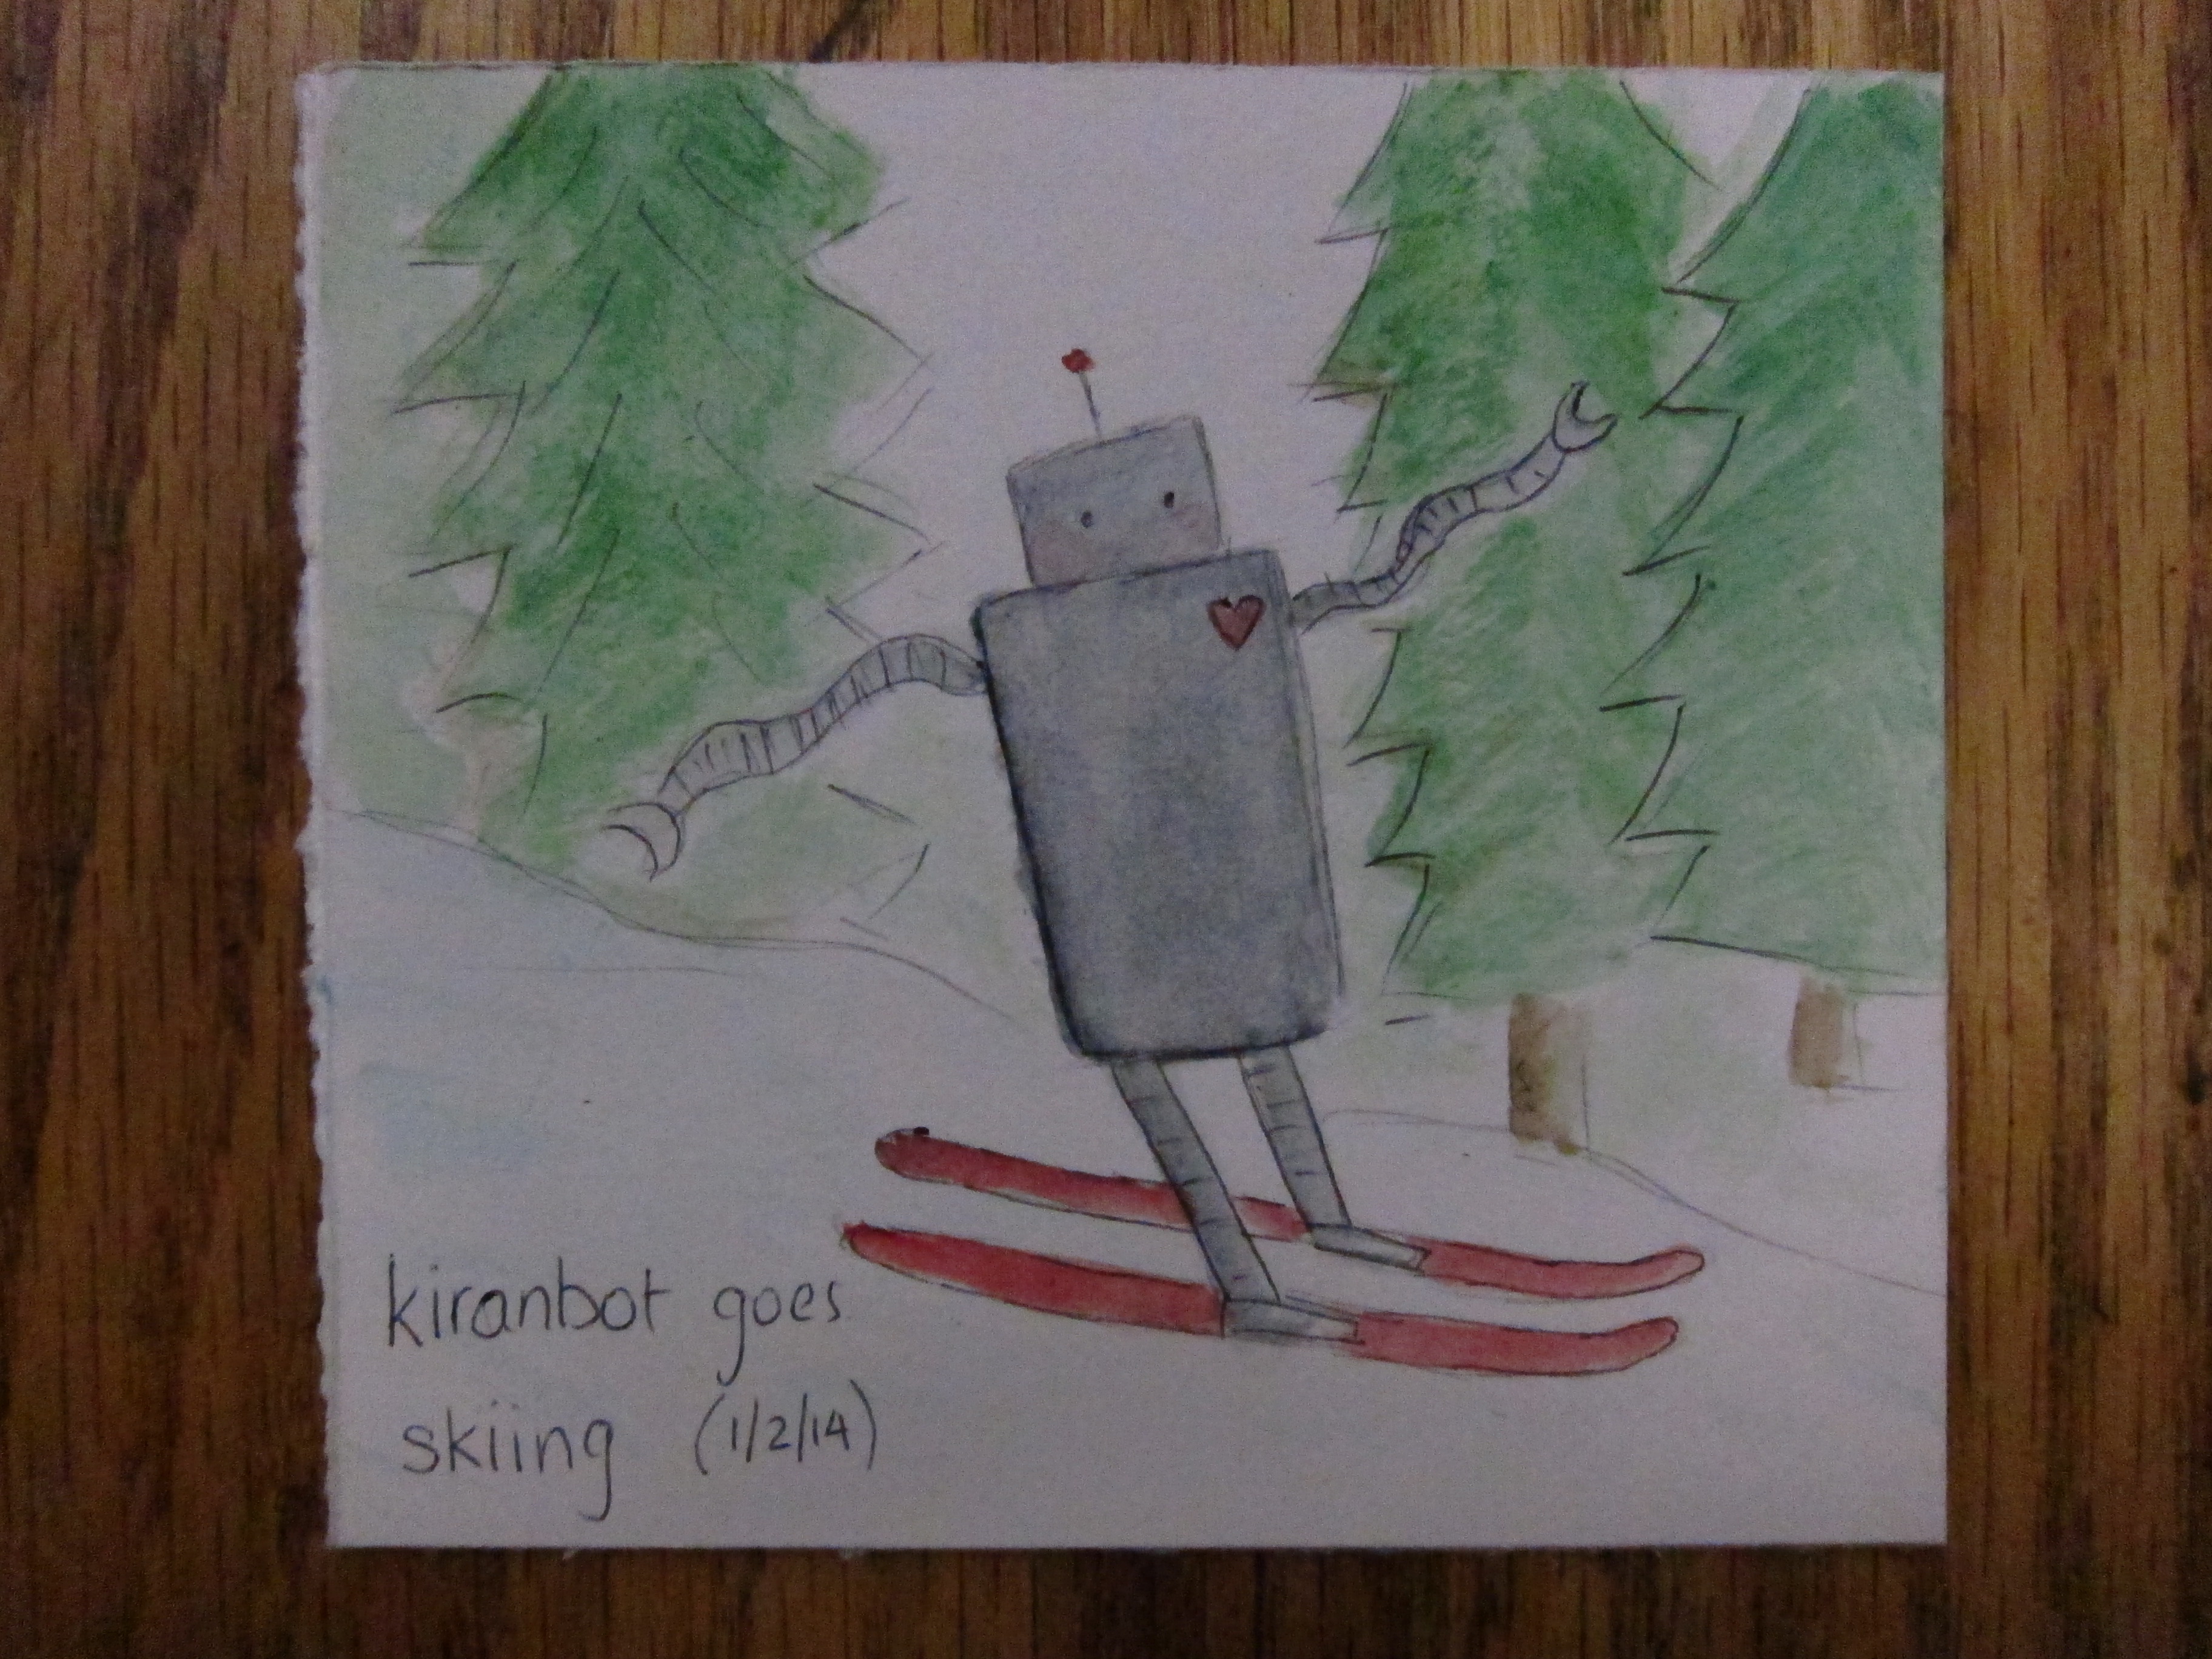 kiranbot goes
skiing (1/2/14)